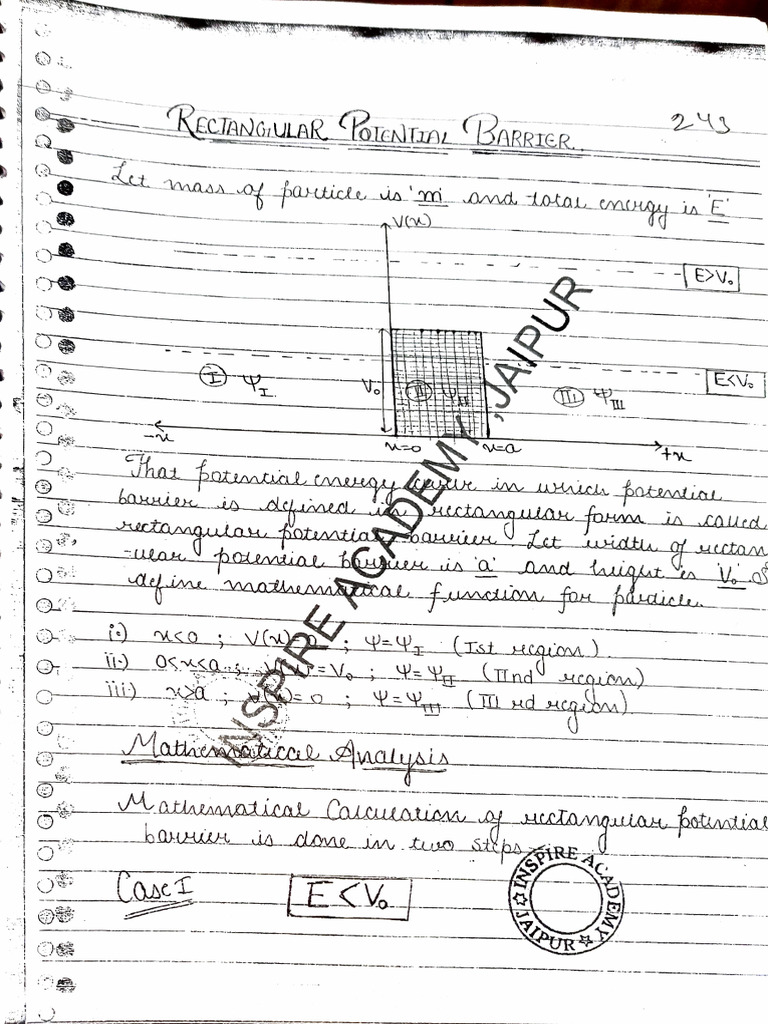 RECTANGULAR POTENTIAL BARRIER.
243
Let mass of particle is 'm' and total energy is 'E'
V(x)
E>V₀
E<V₀
I ψ_I
V₀
II ψ_II
III ψ_III
-x
x=0
x=a
+x
That potential energy curve in which potential
barrier is defined in rectangular form is called
rectangular potential barrier. Let width of rectan
-ular potential barrier is 'a' and height is 'V₀'
define mathematical function for particle.
i.) x<0 ; V(x)=0 ; ψ=ψ_I (Ist region)
ii.) 0<x<a ; V(x)=V₀ ; ψ=ψ_II (IInd region)
iii) x>a ; V(x)=0 ; ψ=ψ_III (III rd region)
Mathematical Analysis
Mathematical Calculation of rectangular potential
barrier is done in two steps
Case I
E<V₀
INSPIRE ACADEMY, JAIPUR
INSPIRE ACADEMY
JAIPUR